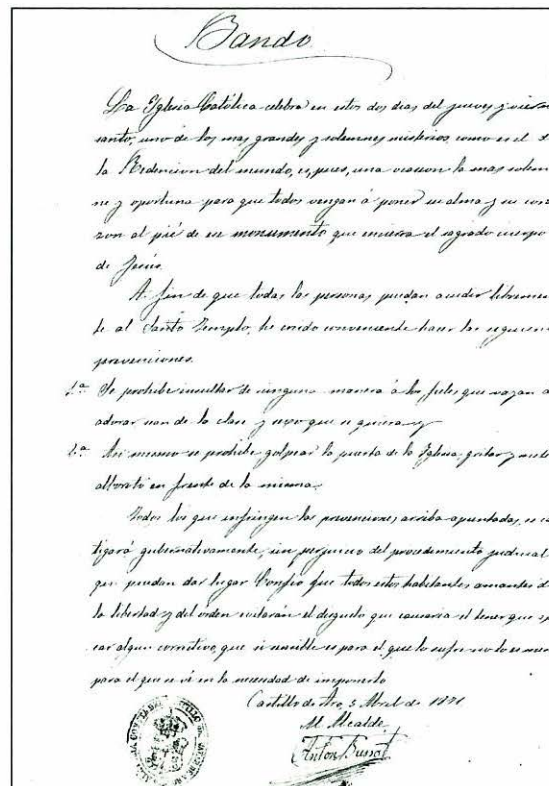 Bando
La Iglesia Católica celebra en estos dos dias del jueves y viern
santo, uno de los mas grandes y solemnes misterios como es el d
la Redencion del mundo, es, pues, una ocasion la mas solem
ne y oportuna para que todos vengan á poner su alma y su cora
zon al pié de ese monumento que encierra el sagrado cuerpo
de Jesús.
A fin de que todas las personas puedan acudir librem
te al Santo Templo, he creido conveniente hacer las siguien
prevenciones.
1.ª Se prohibe insultar de ninguna manera á los fieles que vayan a
adorar sean de la clase y sexo que se quiera y
2.ª Asi mismo se prohibe golpear la puerta de la Iglesia, gritar y mover
alboroto en frente de la misma.
Todos los que infringen las prevenciones arriba apuntadas, se cas
tigará gubernativamente, sin perjuicio del procedimiento judicial
que puedan dar lugar Confio que todos estos habitantes amantes d
la libertad y del orden evitarán el disgusto que causaria el tener que
car algun correctivo, que si sensible es para el que lo sufre no lo es
para el que se vé en la necesidad de imponerlo
Castillo de Aro, 5 Abril de
El Alcalde